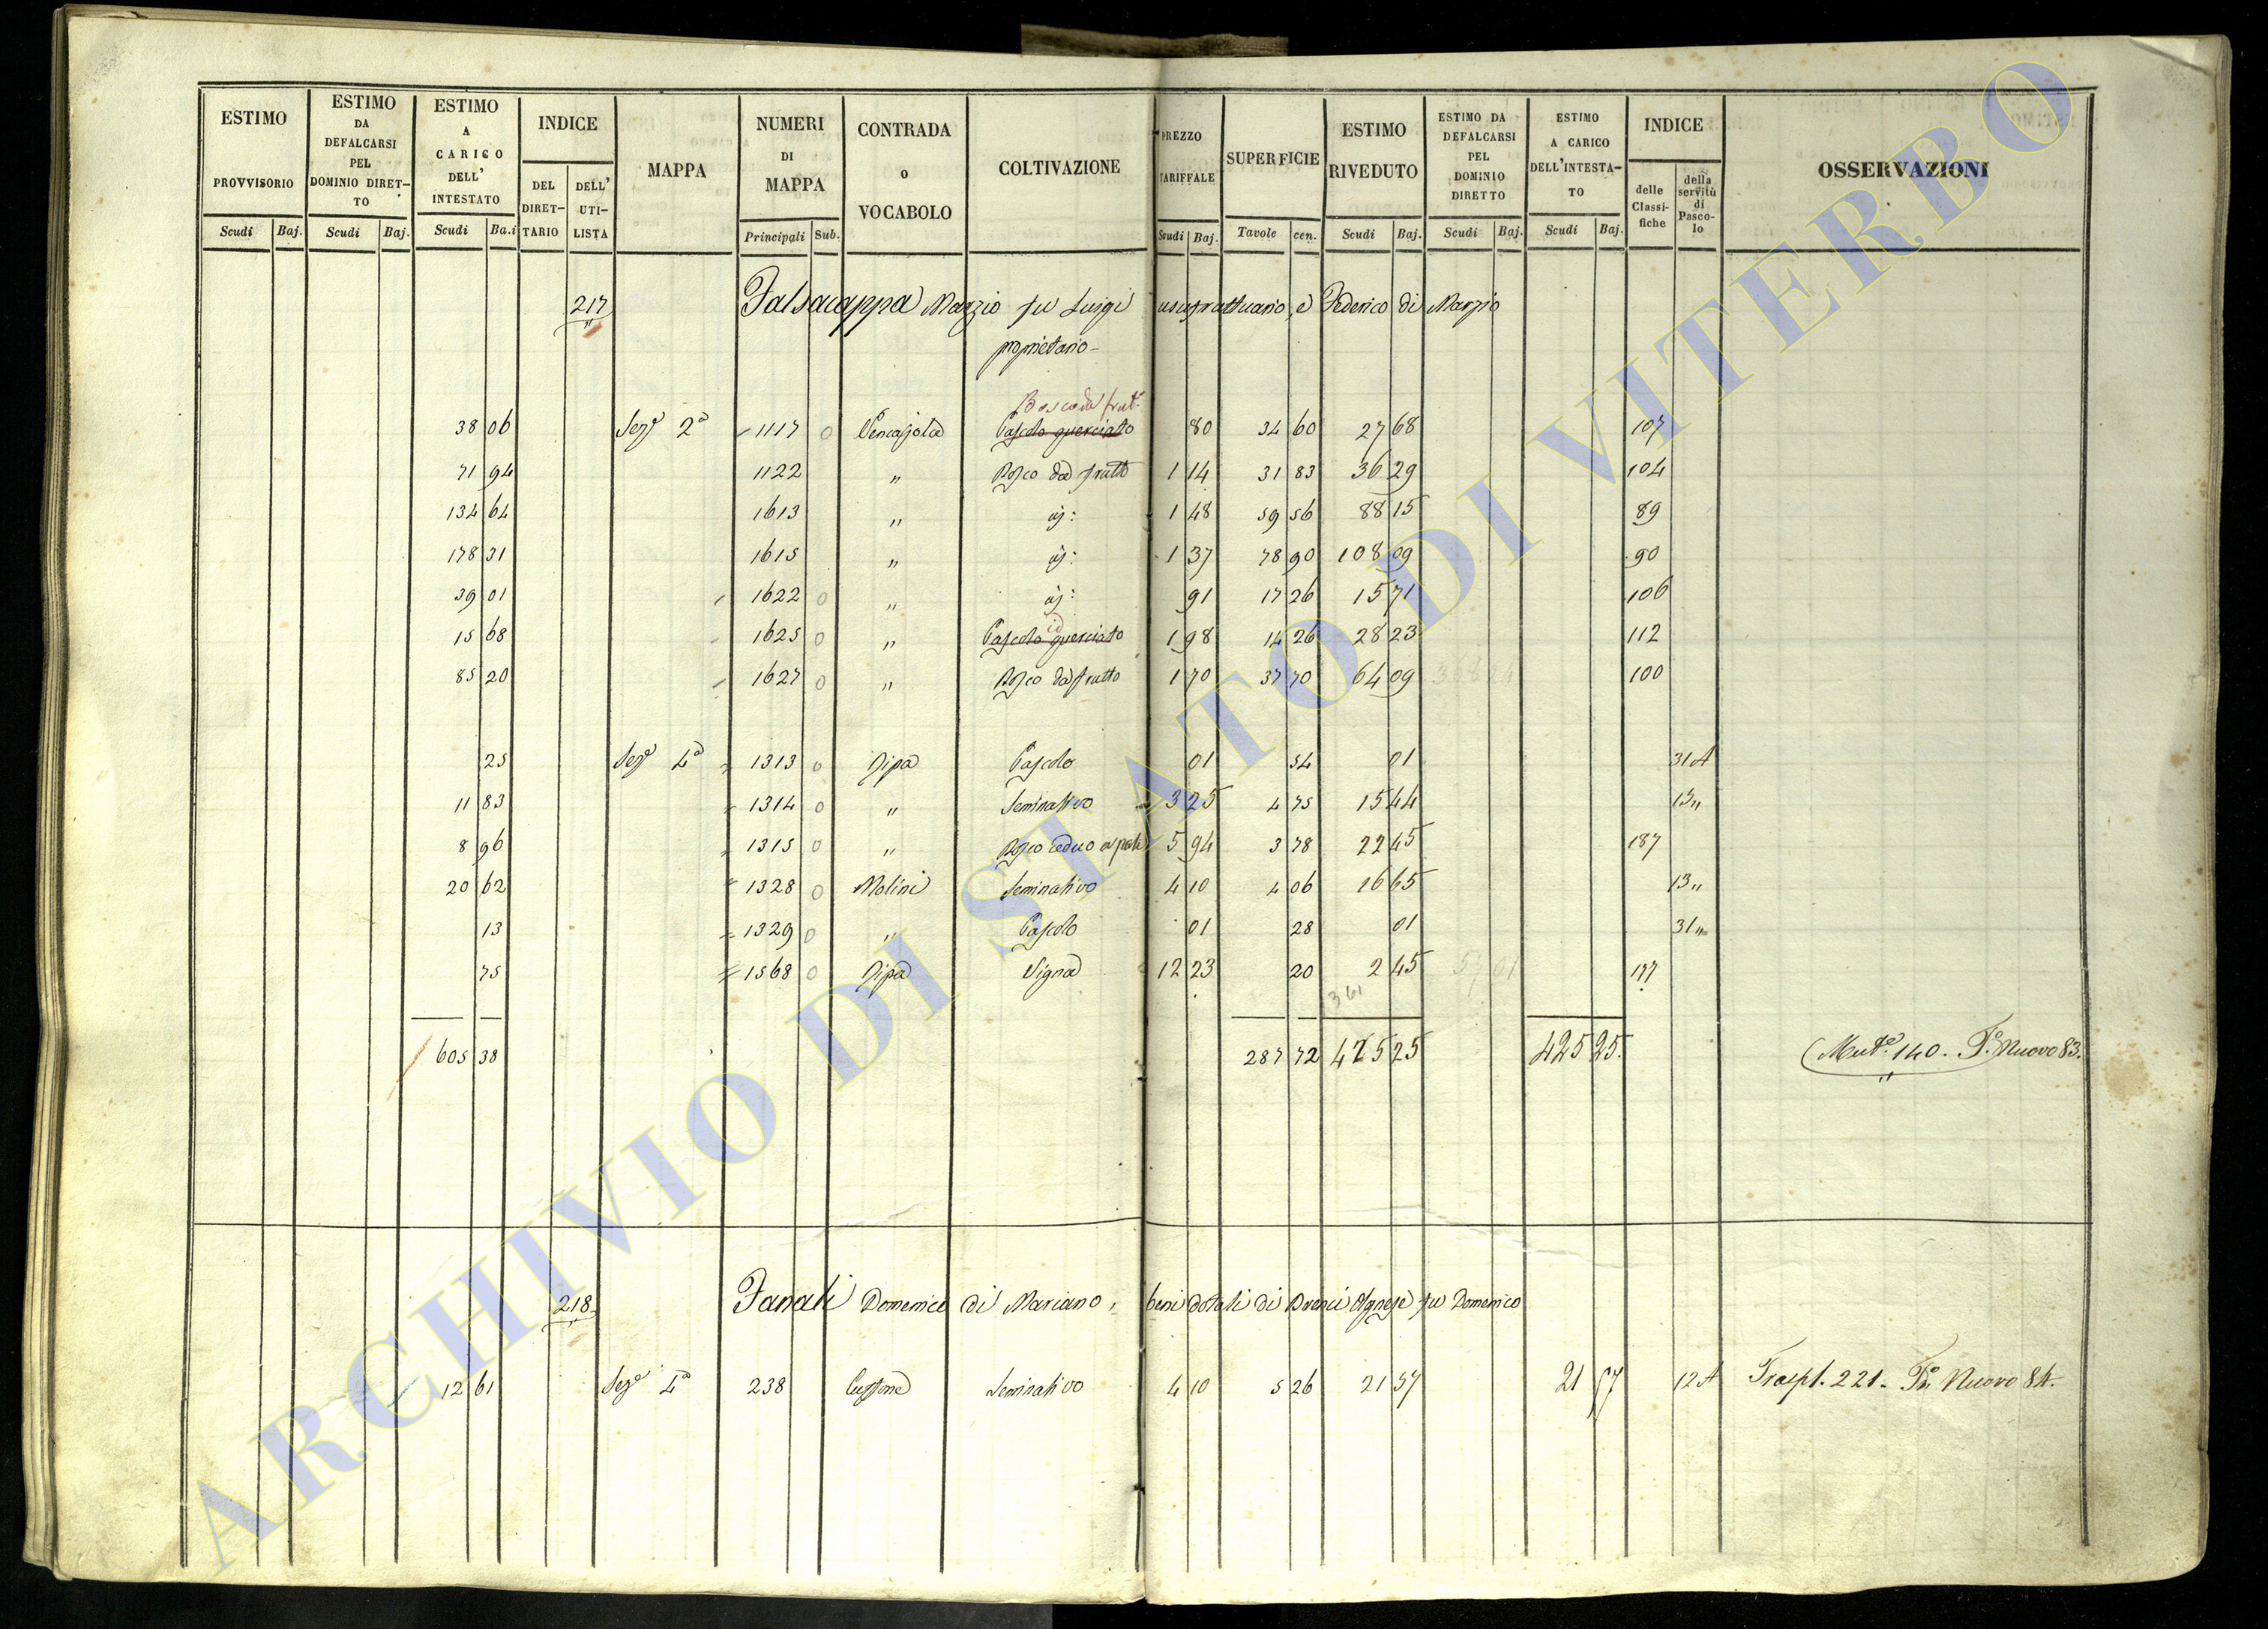 ESTIMO PROVVISORIO Scudi Baj. | ESTIMO DA DEFALCARSI PEL DOMINIO DIRETTO Scudi Baj. | ESTIMO A CARICO DELL' INTESTATO Scudi Ba.i | INDICE DEL DIRETTARIO DELL' UTILISTA | MAPPA | NUMERI DI MAPPA Principali Sub. | CONTRADA o VOCABOLO | COLTIVAZIONE | PREZZO TARIFFALE Scudi Baj. | SUPERFICIE Tavole cen. | ESTIMO RIVEDUTO Scudi Baj. | ESTIMO DA DEFALCARSI PEL DOMINIO DIRETTO Scudi Baj. | ESTIMO A CARICO DELL'INTESTATO Scudi Baj. | INDICE delle Classifiche della servitù di Pascolo | OSSERVAZIONI
217 Falsacappa Marzio fu Luigi usufruttuario, e Federico di Marzio
proprietario-
Bosco da frut.
38 06 Sez.e 2a 1117 0 Pascolo querciato 80 34 60 27 68 107
71 94 1122 " Bosco da frutto 1 14 31 83 36 29 104
134 64 1613 " 1 48 59 56 88 15 89
178 31 1615 " 1 37 78 90 108 09 90
39 01 1622 0 " 91 17 26 15 71 106
id
15 68 1625 0 " Pascolo querciato 1 98 14 26 28 23 112
85 20 1627 0 " Bosco da frutto 1 70 37 70 64 09 100
25 Sez.e 4a 1313 0 Ripa Pascolo 01 54 01 31 A
11 83 1314 0 " Seminativo 3 25 4 75 15 44 13 "
8 96 1315 0 " Bosco ceduo a pali 5 94 3 78 22 45 187
20 62 1328 0 Molini Seminativo 4 10 4 06 16 65 13 "
13 1329 0 " Pascolo 01 28 01 31 "
75 1568 0 Ripa Vigna 12 23 20 2 45 177
361
605 38 287 72 425 25 425 25. Mut.e 140. F.o Nuovo 83.
218 Fanali Domenico di Mariano, beni dotali di Brenci Agnese fu Domenico
12 61 Sez.e 4a 238 Seminativo 4 10 5 26 21 57 21 57 12 A Traspt. 221. F.o Nuovo 84.
ARCHIVIO DI STATO DI VITERBO